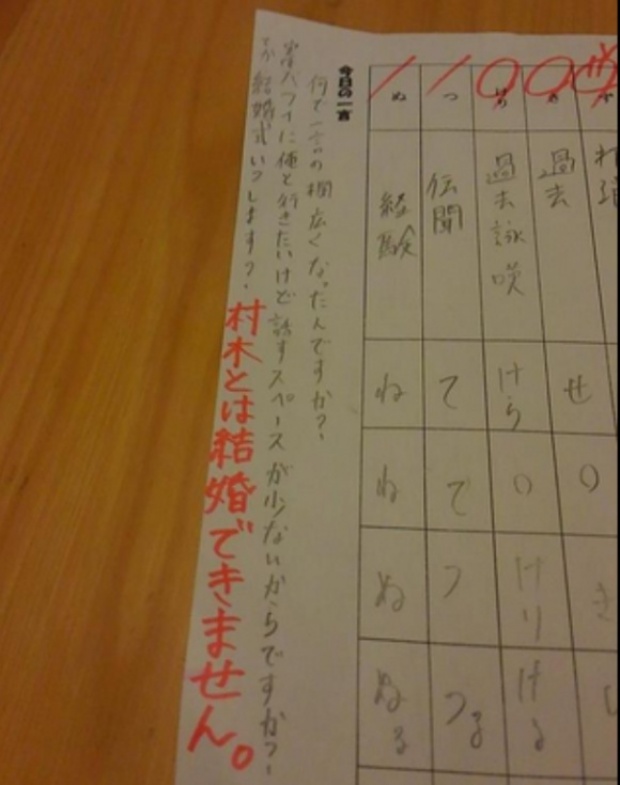 き
過去
せ
○
き
けり
過去詠嘆
けら
○
けり
ける
つ
伝聞
て
て
つ
つる
ぬ
経験
ね
ね
ぬ
ぬる
今日の一言
何で一言の欄広くなったんですか？
俺と行きたいけど話すスペースが少ないからですか？
てか結婚式いつします？
村木とは結婚できません。